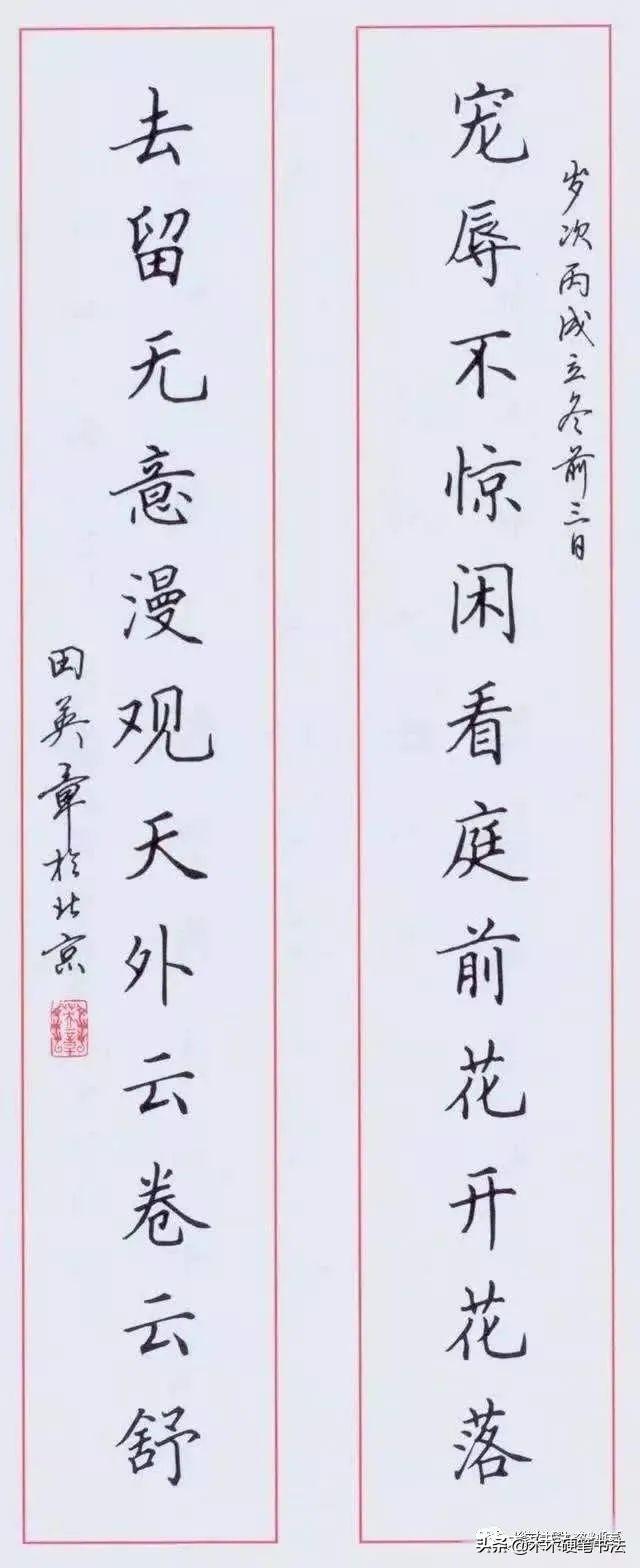 岁次丙戌立冬前三日
宠辱不惊闲看庭前花开花落
去留无意漫观天外云卷云舒
田英章於北京
头条@木木硬笔书法